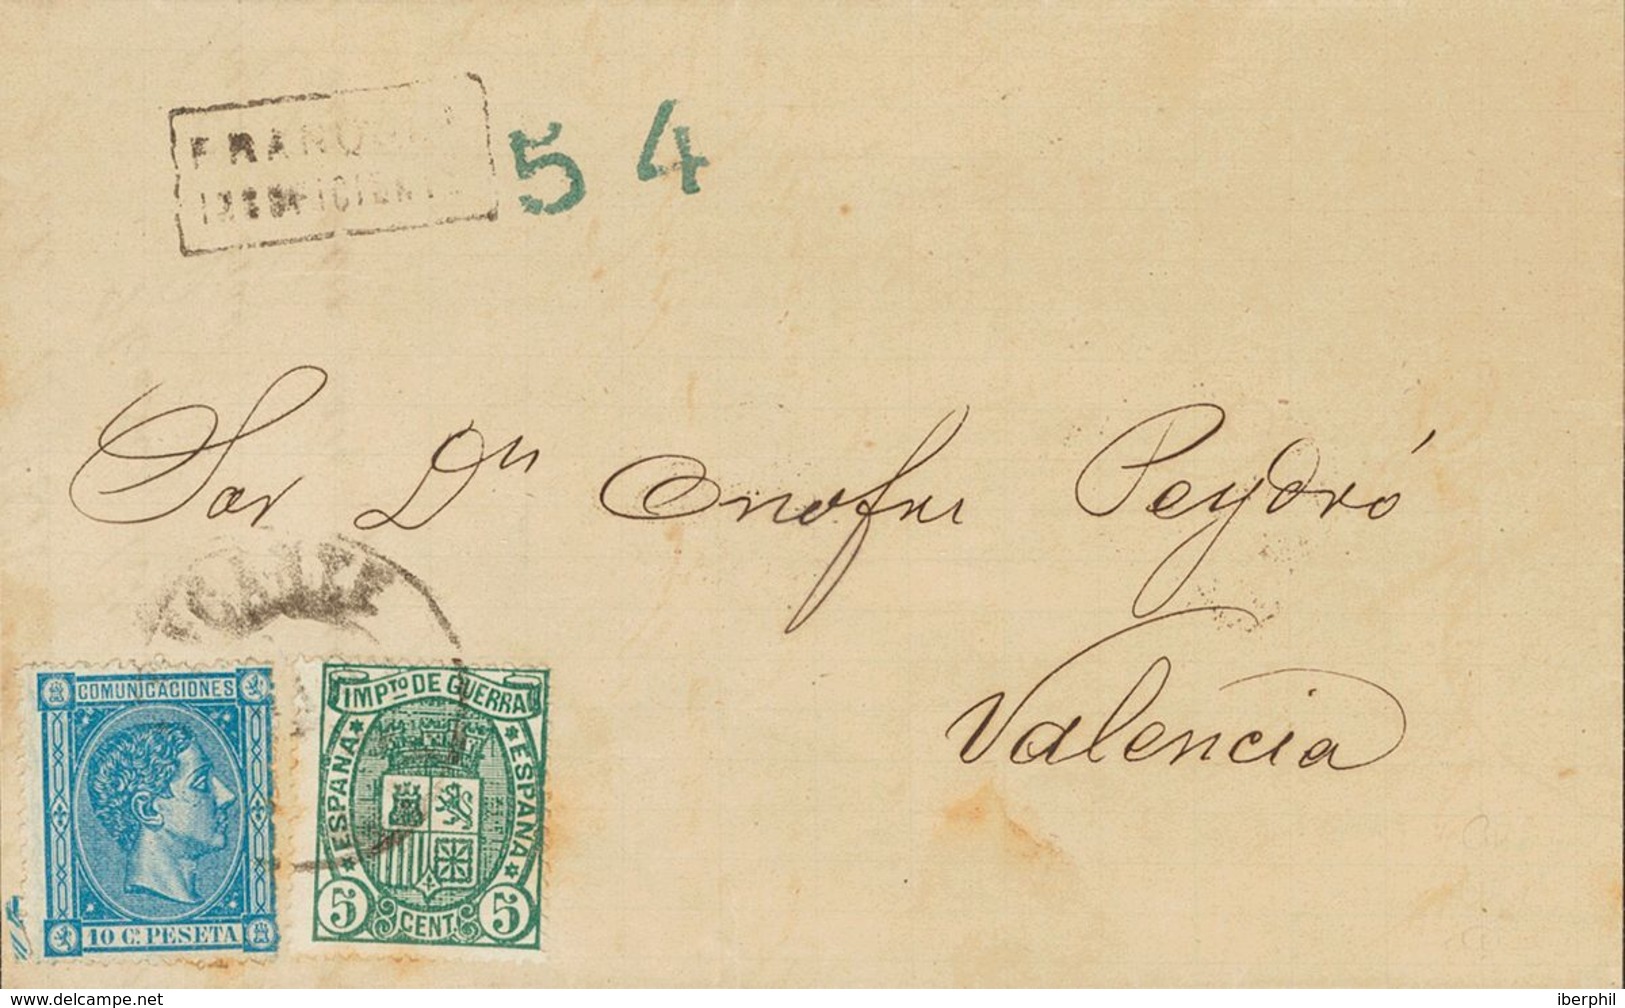 FRANQUEO
INSUFICIENTE
5 4
Sor Dn Onofre Peydró
Valencia
COMUNICACIONES
10 Cs. PESETA
IMPto DE GUERRA
ESPAÑA
ESPAÑA
5 CENT. 5
www.delcampe.net
iberphil